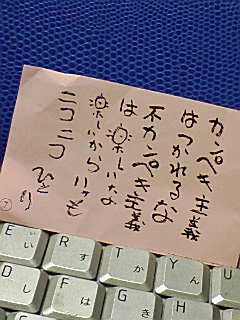 カンペキ主義
はつかれるな
不カンペキ主義
は楽しいな
楽しいからいつも
ニコニコ
ひと
7
E い
R す
T か
Y ん
U
D し
F は
G き
H